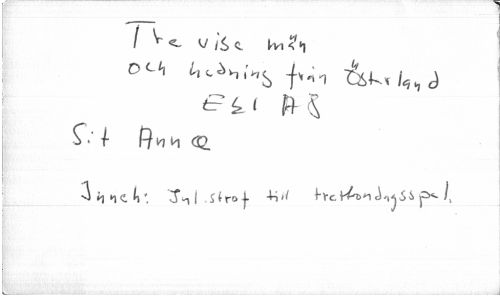 Tre vise män
och hedning från Österland
Ekl A8
S:t Anna
Inneh: Jul.strof till trettondagsspel.